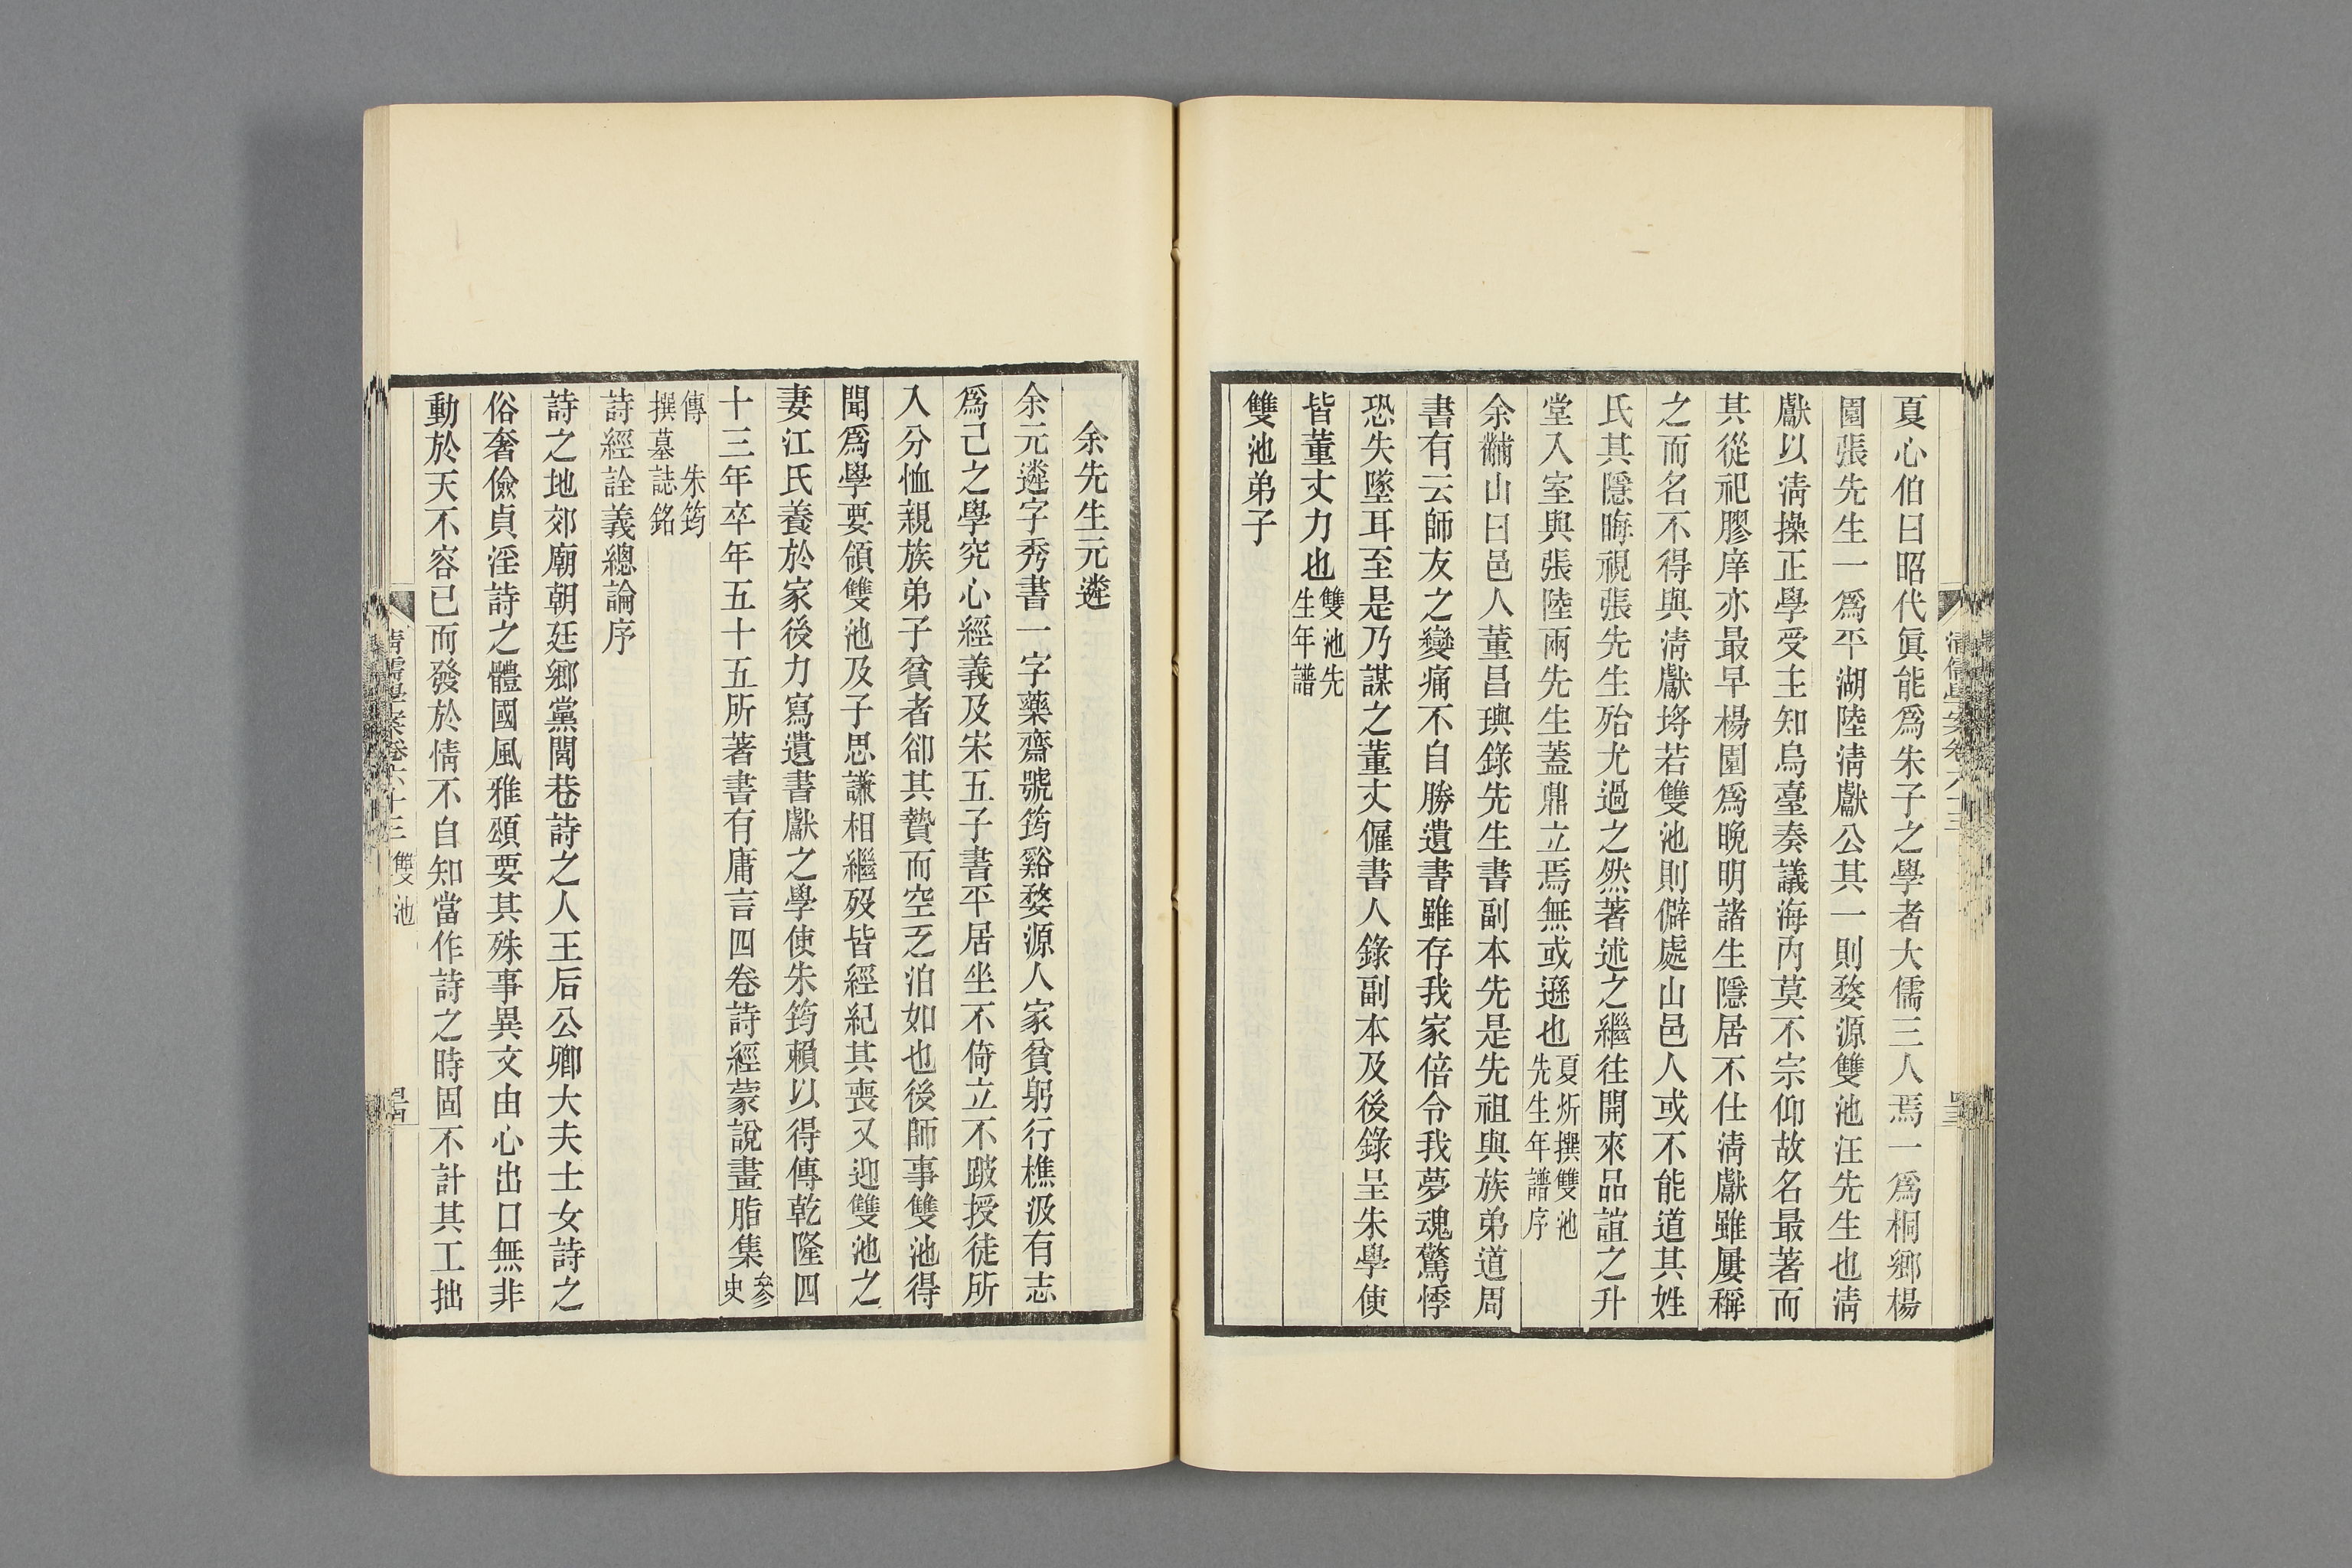 夏心伯曰昭代眞能爲朱子之學者大儒三人焉一爲桐鄉楊
園張先生一爲平湖陸淸獻公其一則婺源雙池汪先生也淸
獻以淸操正學受主知烏臺奏議海內莫不宗仰故名最著而
其從祀膠庠亦最早楊園爲晩明諸生隱居不仕淸獻雖屢稱
之而名不得與淸獻埒若雙池則僻處山邑人或不能道其姓
氏其隱晦視張先生殆尤過之然著述之繼往開來品誼之升
堂入室與張陸兩先生蓋鼎立焉無或遜也夏炘撰雙池
先生年譜序
余黼山曰邑人董昌璵錄先生書副本先是先祖與族弟道周
書有云師友之變痛不自勝遺書雖存我家倍令我夢魂驚悸
恐失墜耳至是乃謀之董丈僱書人錄副本及後錄呈朱學使
皆董丈力也雙池先
生年譜
雙池弟子
余先生元遴
余元遴字秀書一字藥齋號筠谿婺源人家貧躬行樵汲有志
爲己之學究心經義及宋五子書平居坐不倚立不跛授徒所
入分恤親族弟子貧者卻其贄而空乏泊如也後師事雙池得
聞爲學要領雙池及子思謙相繼歿皆經紀其喪又迎雙池之
妻江氏養於家後力寫遺書獻之學使朱筠賴以得傳乾隆四
十三年卒年五十五所著書有庸言四卷詩經蒙說畫脂集參
史
傳　朱筠
撰墓誌銘
詩經詮義總論序
詩之地郊廟朝廷鄉黨閭巷詩之人王后公卿大夫士女詩之
俗奢儉貞淫詩之體國風雅頌要其殊事異文由心出口無非
動於天不容已而發於情不自知當作詩之時固不計其工拙
淸儒學案卷六十三 雙池